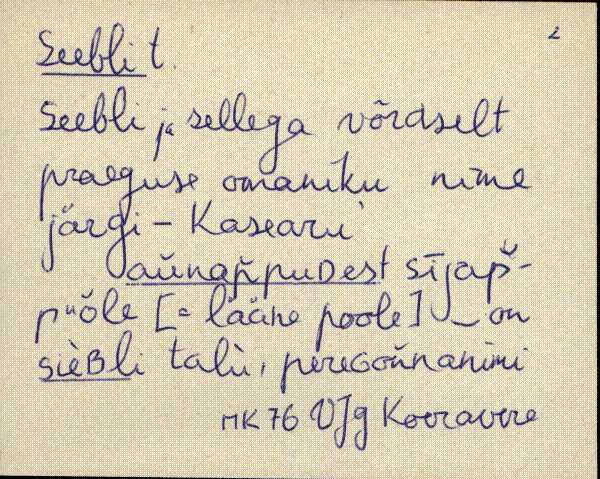 2
Seebli t.
Seebli ja sellega võrdselt
praeguse omaniku nime
järgi – Kasearu
aŭnap̆puDest sījap̆-
pŭole [= lääne poole] on
sièBli talù, pereGoŭnanimi
MK 76 VJg Koeravere